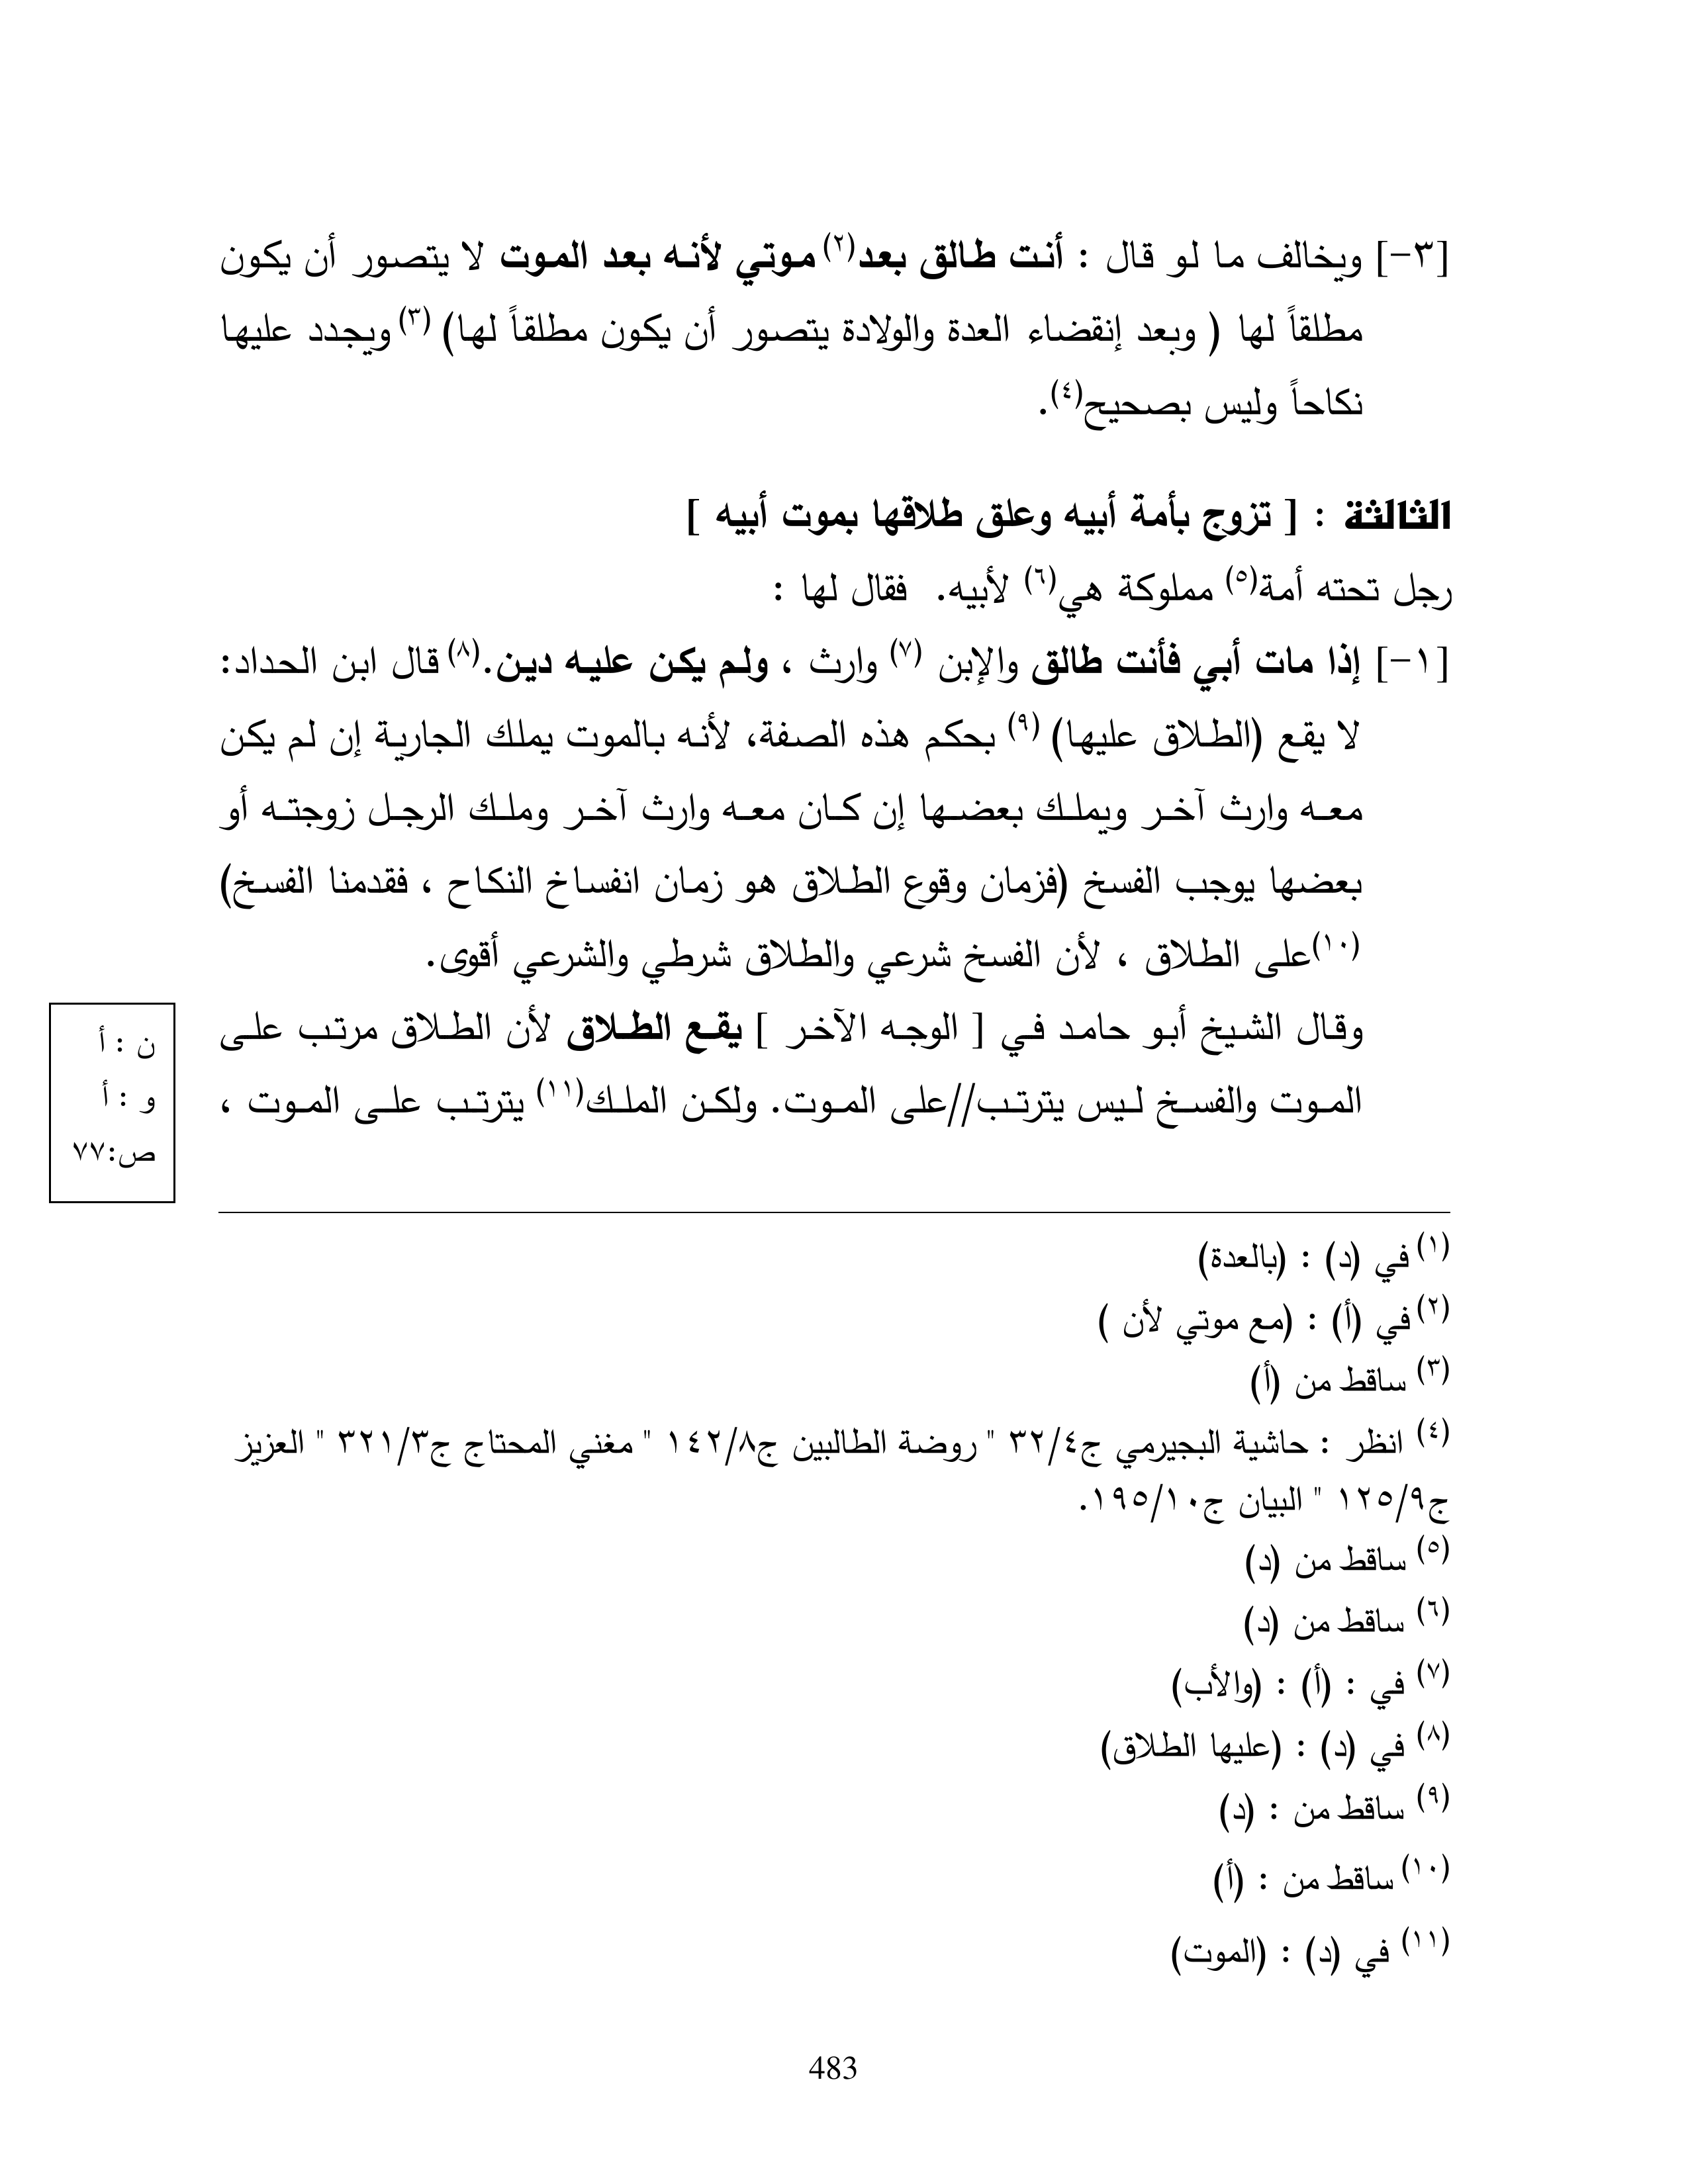 [٣-] ويخالف ما لو قال : أنت طالق بعد(٢) موتي لأنه بعد الموت لا يتصور أن يكون
مطلقاً لها ( وبعد إنقضاء العدة والولادة يتصور أن يكون مطلقاً لها) (٣) ويجدد عليها
نكاحاً وليس بصحيح(٤).
الثالثة : [ تزوج بأمة أبيه وعلق طلاقها بموت أبيه ]
رجل تحته أمة(٥) مملوكة هي(٦) لأبيه. فقال لها :
[١-] إذا مات أبي فأنت طالق والإبن (٧) وارث ، ولم يكن عليه دين.(٨) قال ابن الحداد:
لا يقع (الطلاق عليها) (٩) بحكم هذه الصفة، لأنه بالموت يملك الجارية إن لم يكن
معه وارث آخر ويملك بعضها إن كان معه وارث آخر وملك الرجل زوجته أو
بعضها يوجب الفسخ (فزمان وقوع الطلاق هو زمان انفساخ النكاح ، فقدمنا الفسخ)
(١٠)على الطلاق ، لأن الفسخ شرعي والطلاق شرطي والشرعي أقوى.
وقال الشيخ أبو حامد في [ الوجه الآخر ] يقع الطلاق لأن الطلاق مرتب على
الموت والفسخ ليس يترتب//على الموت. ولكن الملك(١١) يترتب على الموت ،
ن : أ
و : أ
ص:٧٧
(١) في (د) : (بالعدة)
(٢) في (أ) : (مع موتي لأن )
(٣) ساقط من (أ)
(٤) انظر : حاشية البجيرمي ج٣٢/٤ " روضة الطالبين ج١٤٢/٨ " مغني المحتاج ج٣٢١/٣ " العزيز
ج١٢٥/٩ " البيان ج١٩٥/١٠.
(٥) ساقط من (د)
(٦) ساقط من (د)
(٧) في : (أ) : (والأب)
(٨) في (د) : (عليها الطلاق)
(٩) ساقط من : (د)
(١٠) ساقط من : (أ)
(١١) في (د) : (الموت)
483